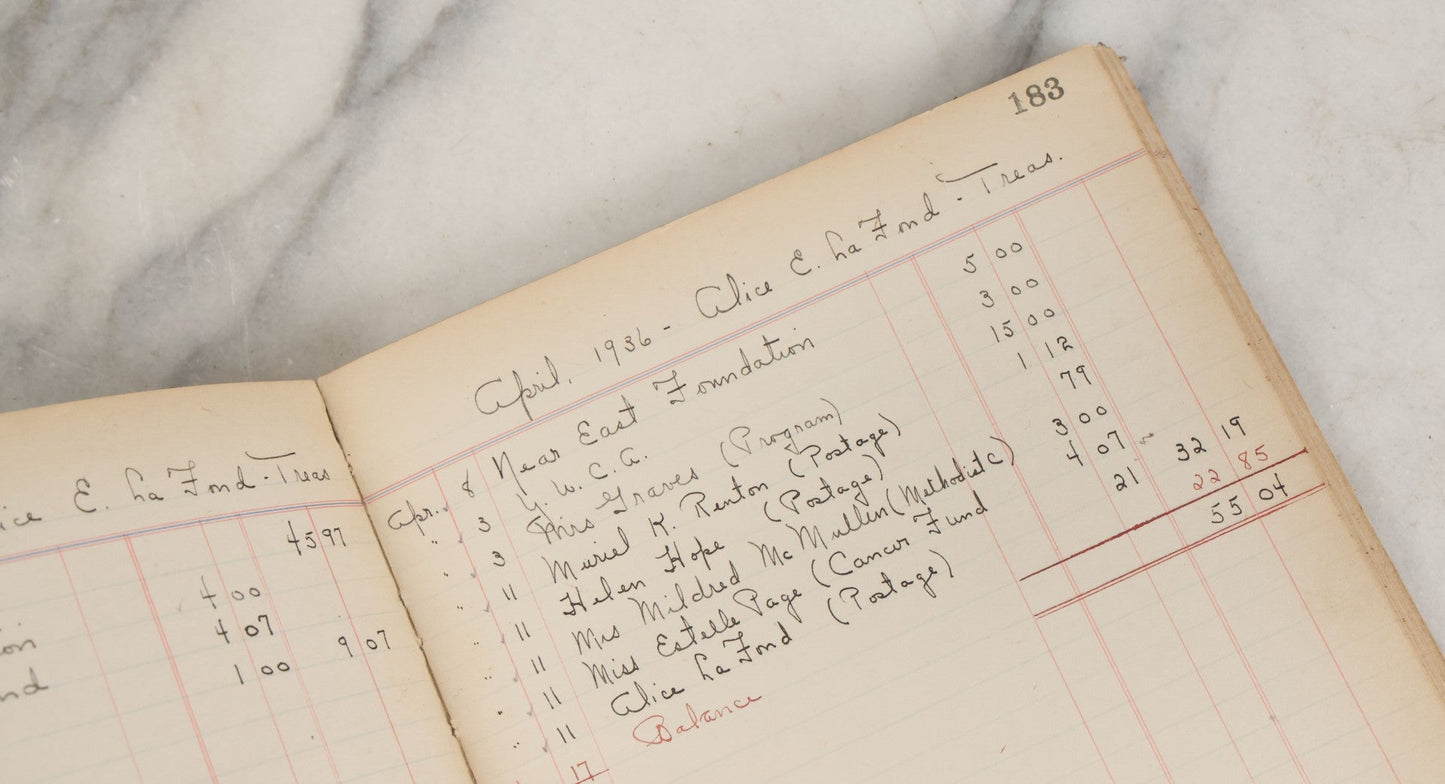 ice E. La Fond - Treas
45 97
4 00
on 4 07
nd 1 00 9 07
183
April, 1936 - Alice E. La Fond - Treas.
Apr. 8 Near East Foundation 5 00
" 3 Y. W. C. A. 3 00
" 3 Mrs Graves (Program) 15 00
" 11 Muriel K. Renton (Postage) 1 12
" 11 Helen Hope (Postage) 79
" 11 Mrs Mildred McMullen (Methodist C) 3 00
" 11 Miss Estelle Page (Cancer Fund 4 07
" 11 Alice La Fond (Postage) 21 32 19
17 Balance 22 85
55 04